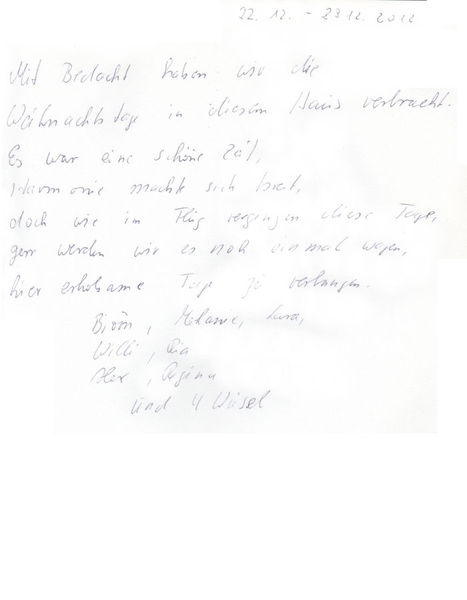 22. 12. - 29.12. 2012
Mit Bedacht haben wir die
Weihnachtstage in diesem Haus verbracht.
Es war eine schöne Zeit,
Harmonie machte sich breit,
doch wie im Flug vergangen diese Tage,
gern werden wir es noch einmal wagen,
hier erholsame Tage zu verbringen.
Björn, Melanie, Lara,
Willi, Ria
Alex, Regina
und 4 Wusel